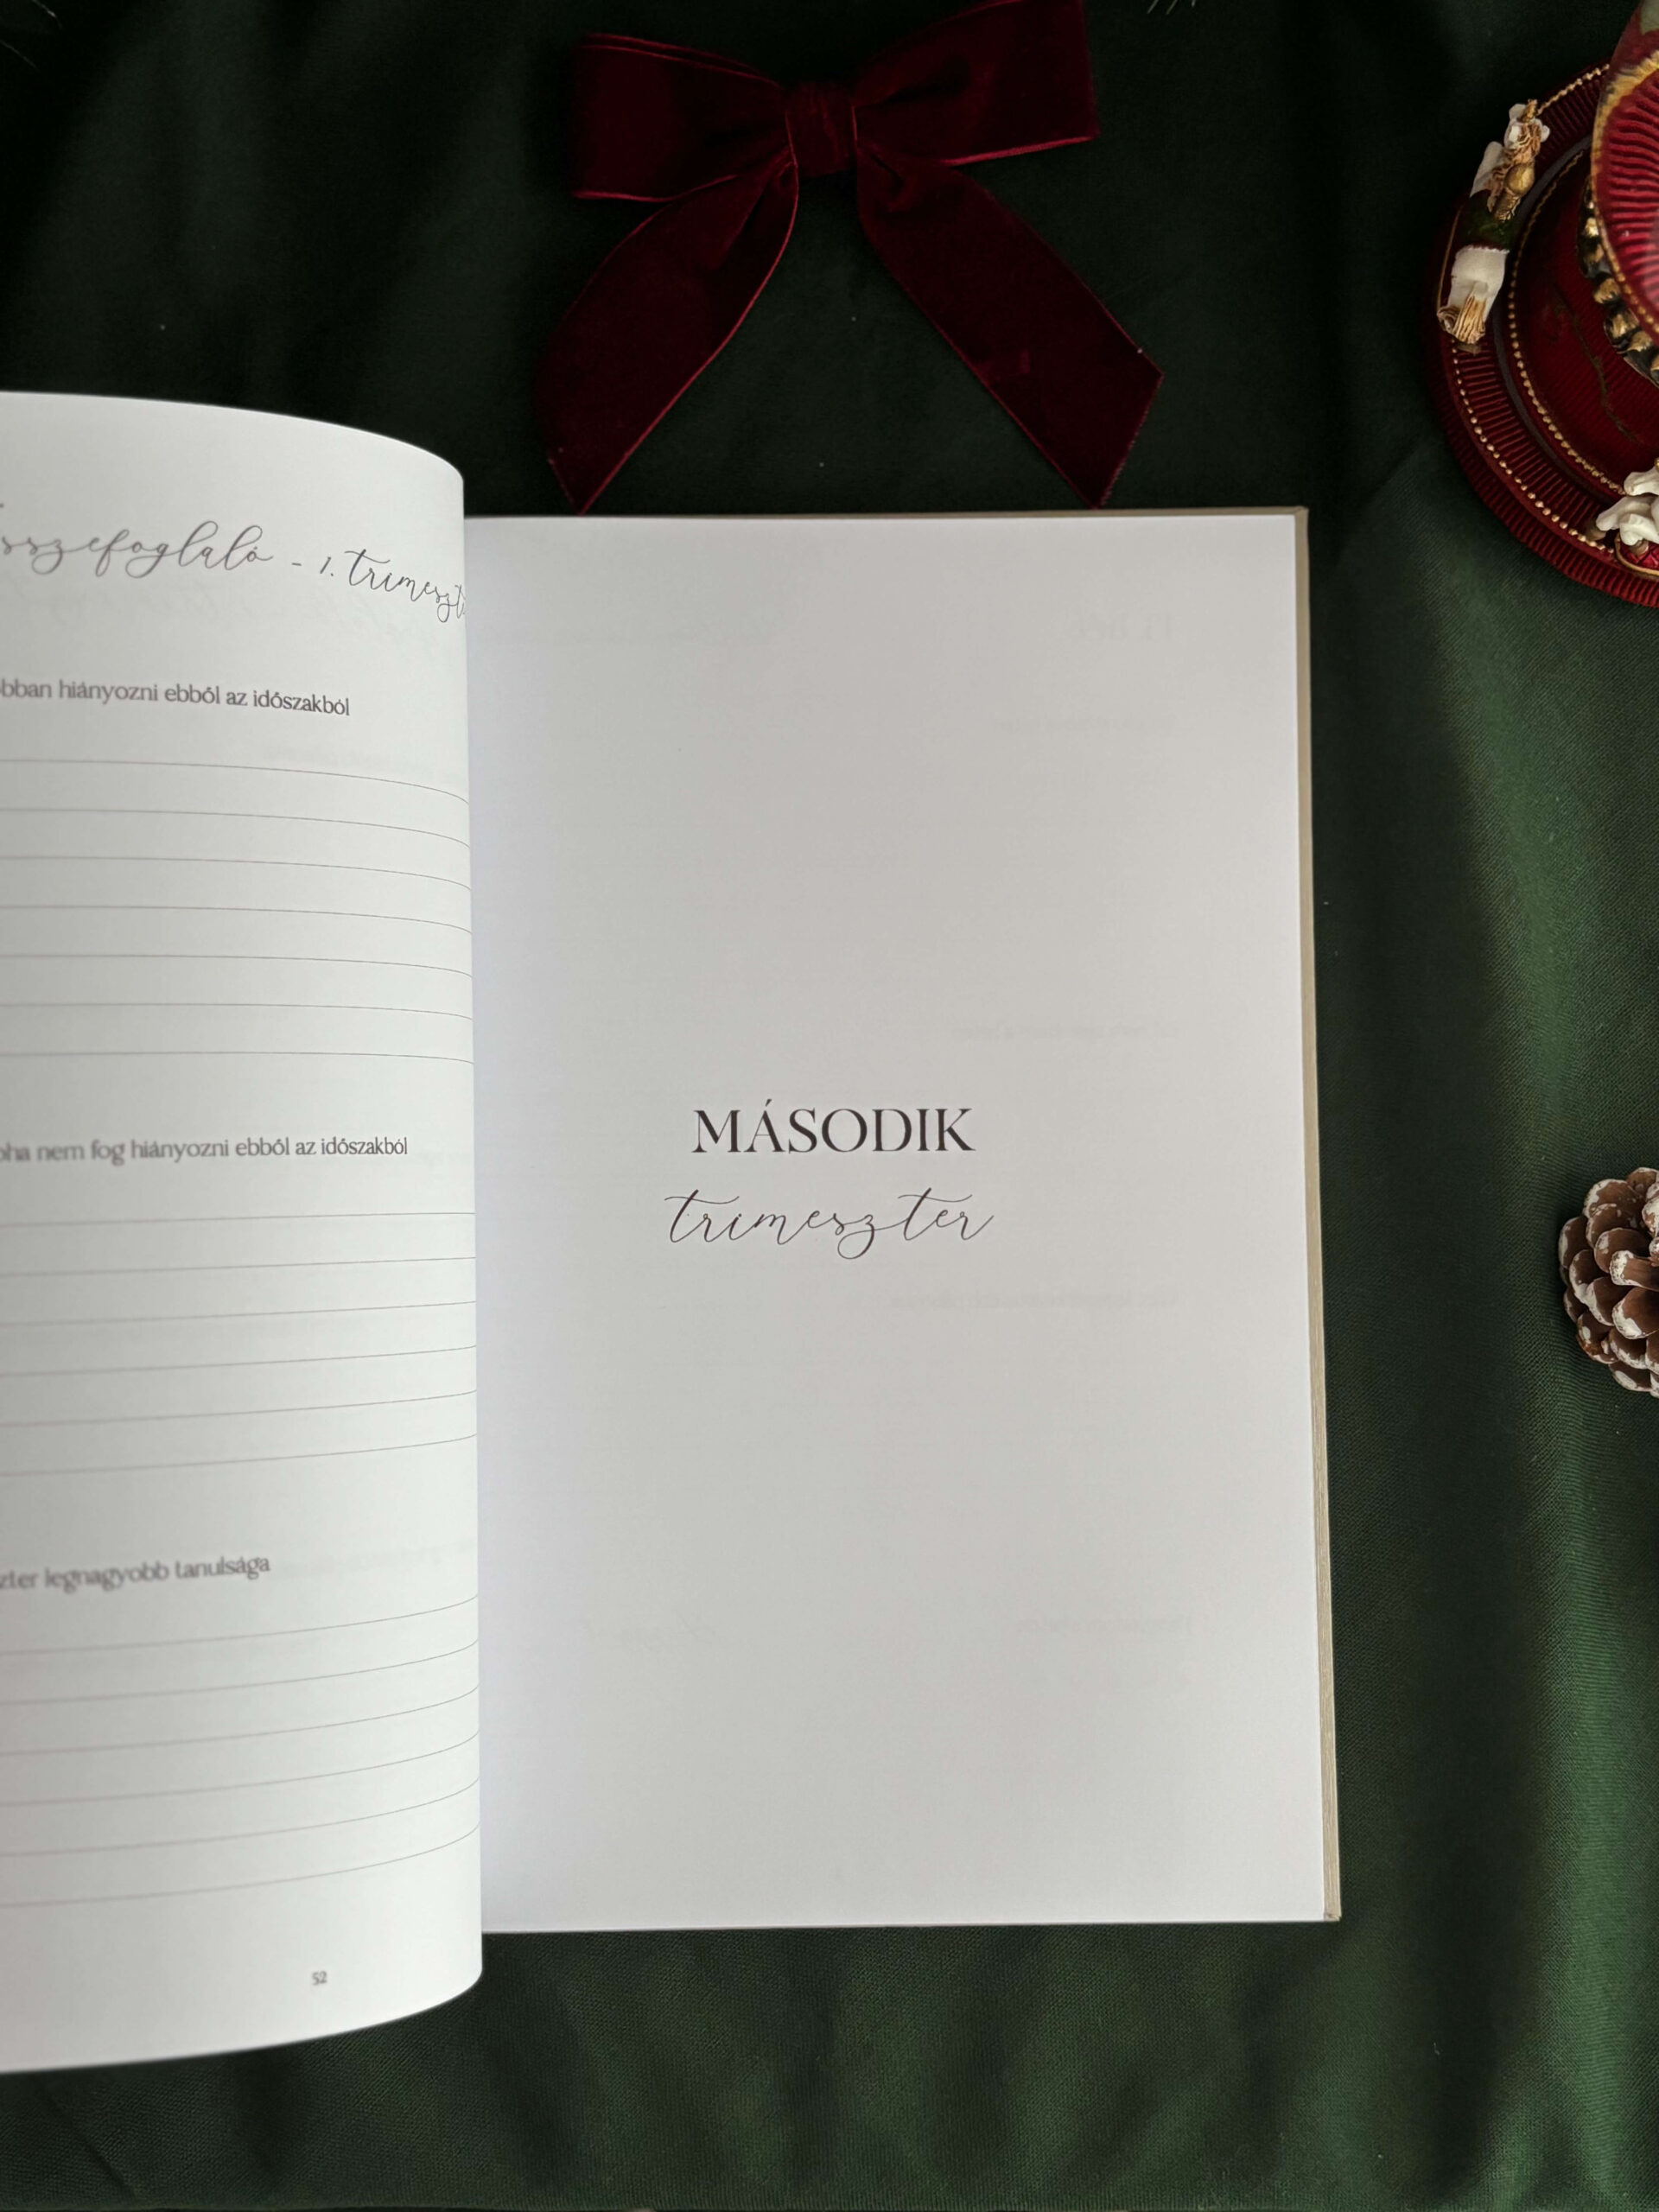 sszefoglaló - 1. trimeszt
obban hiányozni ebből az időszakból
oha nem fog hiányozni ebből az időszakból
zter legnagyobb tanulsága
52
MÁSODIK
trimeszter